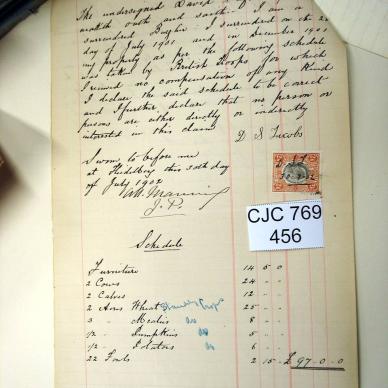 The undersigned David
maketh oath and saith: I am a
surrendered Burgher. I surrendered on the 22
day of July 1901, and in December 1901
my property as per the following schedule
was taken by British Troops for which
I received no compensation of any kind
I declare the said schedule to be correct
and I further declare that no person or
persons are either directly or indirectly
interested in this claim
D S Jacobs
Sworn to before me
at Heidelberg this 30th day
of July 1902
Manning
J.P.
CJC 769
456
Schedule
Furniture 14 5 0
2 Cows 24 - -
2 Calves 12 - -
2 Acres Wheat Standing Crops 25 - -
3 " Mealies do 8 - -
1/2 " Pumpkins do 5 - -
1/2 " Potatoes do 6 - -
22 Fowls 2 15 - £97-0-0